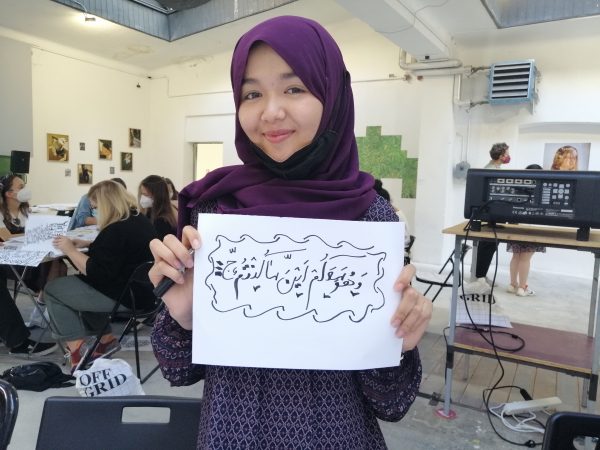 وَهُوَ مَعَكُمْ اَيْنَ مَا كُنْتُمْ
OFF
GRID
GRID